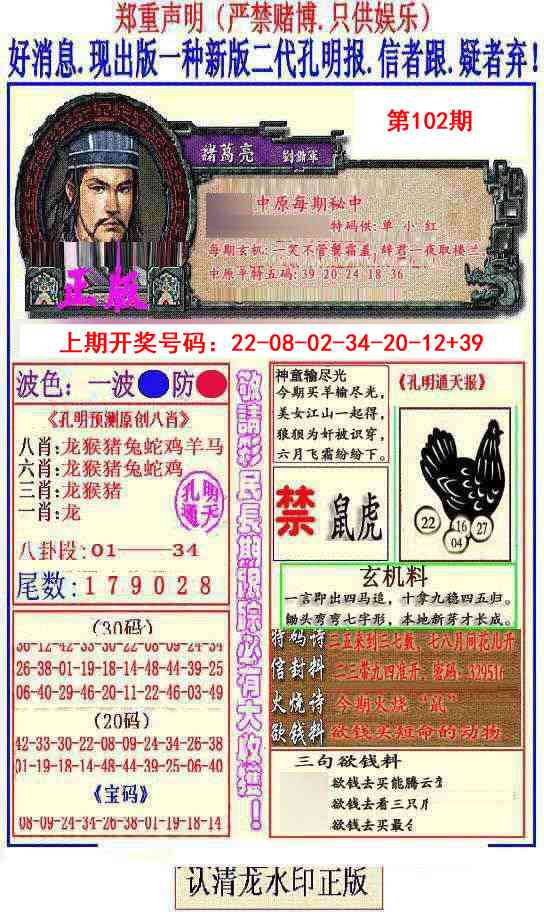 郑重声明（严禁赌博.只供娱乐）
好消息.现出版一种新版二代孔明报.信者跟.疑者弃！
第102期
諸葛亮 劉備軍
中原每期秘中
特码供:单 小 红
每期玄机:一笑不管鬓霜盖 辞君一夜取楼兰
中原平特五码:39 20 24 18 36
正版
上期开奖号码：22-08-02-34-20-12+39
波色：一波 防
《孔明预测原创八肖》
八肖:龙猴猪兔蛇鸡羊马
六肖:龙猴猪兔蛇鸡
三肖:龙猴猪
一肖:龙
孔明通天
八卦段:01——34
尾数:179028
(30码)
30-12-42-33-30-22-08-09-24-34
26-38-01-19-18-14-48-44-39-25
06-40-29-46-20-11-22-46-03-49
(20码)
42-33-30-22-08-09-24-34-26-38
01-19-18-14-48-44-39-25-06-40
《宝码》
08-09-24-34-26-38-01-19-18-14
敬請彩民長期跟踪必有大收獲！
神童输尽光
今期买羊输尽光，
美女江山一起得，
狼狈为奸被识穿，
六月飞霜纷纷下。
《孔明通天报》
禁 鼠虎
22 16 27
04
玄机料
一言即出四马追，十拿九稳四五归。
锄头弯弯七字形，本地新芽才长成。
特码诗 三五来到三七载，七八月同花儿开
信封料 二三带九四准开；密码：32951
火烧诗 今期火烧“鼠”
欲钱料 欲钱买短命的动物
三句欲钱料
欲钱去买能腾云
欲钱去看三只
欲钱去买最
认清龙水印正版